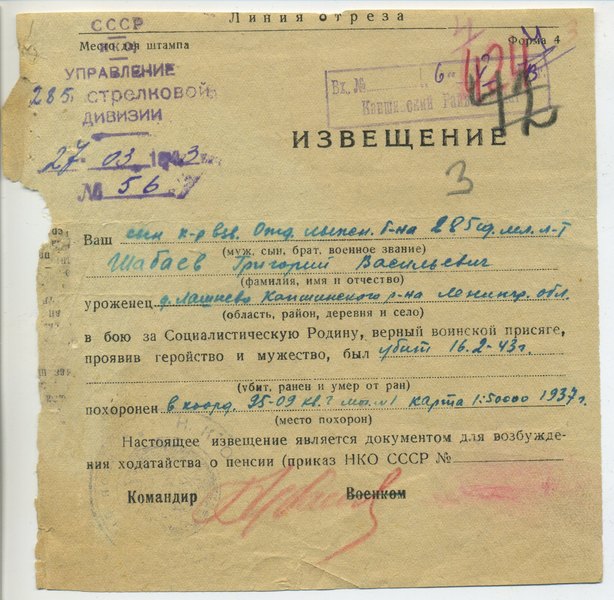 Линия отреза
СССР
НКО
Место для штампа
Форма 4
УПРАВЛЕНИЕ
285 стрелковой
ДИВИЗИИ
27 - 03 1943 г.
№ 56
Вх. №
6
Капшинский Рай
424
12
ИЗВЕЩЕНИЕ
3
Ваш сын к-р взв. Отд. лыжн. б-на 285 сд. мл. л-т
(муж, сын, брат, военное звание)
Шабаев Григорий Васильевич
(фамилия, имя и отчество)
уроженец д. Лашнево Капшинского р-на Ленингр. обл.
(область, район, деревня и село)
в бою за Социалистическую Родину, верный воинской присяге,
проявив геройство и мужество, был убит 16.2-43г.
(убит, ранен и умер от ран)
похоронен в коорд. 95-09 кв. 2 мог. №1 карта 1:50000 1937г.
(место похорон)
Настоящее извещение является документом для возбужде-
ния ходатайства о пенсии (приказ НКО СССР №
Командир Военком